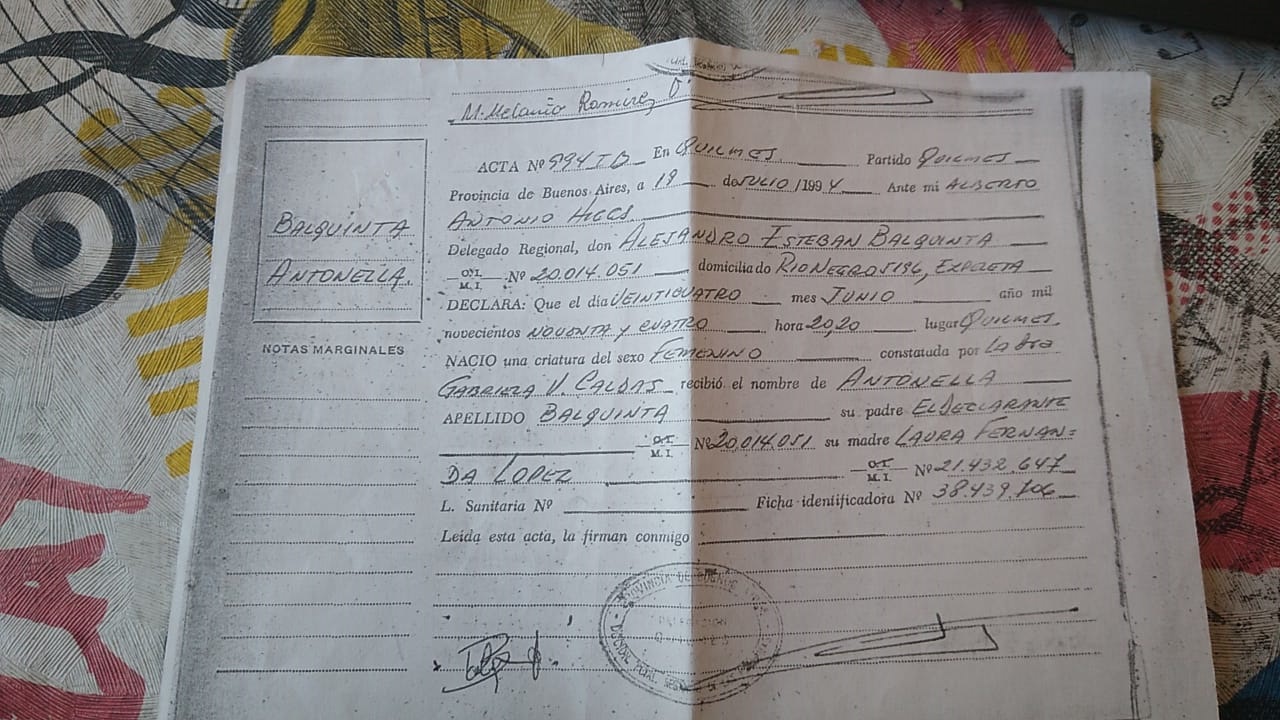 M. Melania Ramirez
BALQUINTA
ANTONELLA.
NOTAS MARGINALES
ACTA Nº 594 I B En QUILMES Partido QUILMES
Provincia de Buenos Aires, a 19 de JULIO /1994 Ante mi ALBERTO
ANTONIO
Delegado Regional, don ALEJANDRO ESTEBAN BALQUINTA
M. I. Nº 20.014.051 domiciliado RIO NEGRO 5196, EZPELETA
DECLARA: Que el dia VEINTICUATRO mes JUNIO año mil
novecientos NOVENTA Y CUATRO hora 20,20 lugar QUILMES
NACIO una criatura del sexo FEMENINO constatada por LA DRA
GABRIELA V. CALDAS recibió el nombre de ANTONELLA
APELLIDO BALQUINTA su padre EL DECLARANTE
M. I. Nº 20.014.051 su madre LAURA FERNAN=
DA LOPEZ M. I. Nº 21.432.647
L. Sanitaria Nº Ficha identificadora Nº 38.439.106
Leída esta acta, la firman conmigo
PROVINCIA DE BUENOS
DELEGACION